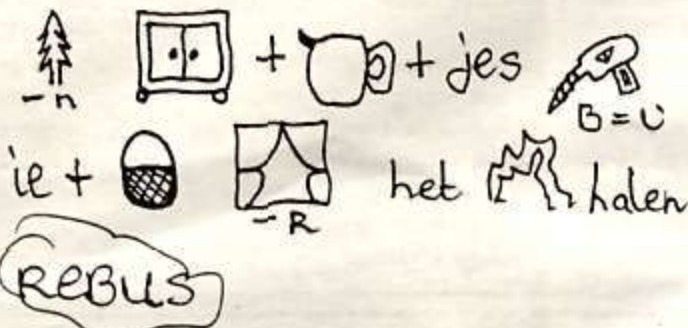 + + jes
- n
B = U
ie + het halen
- R
REBUS